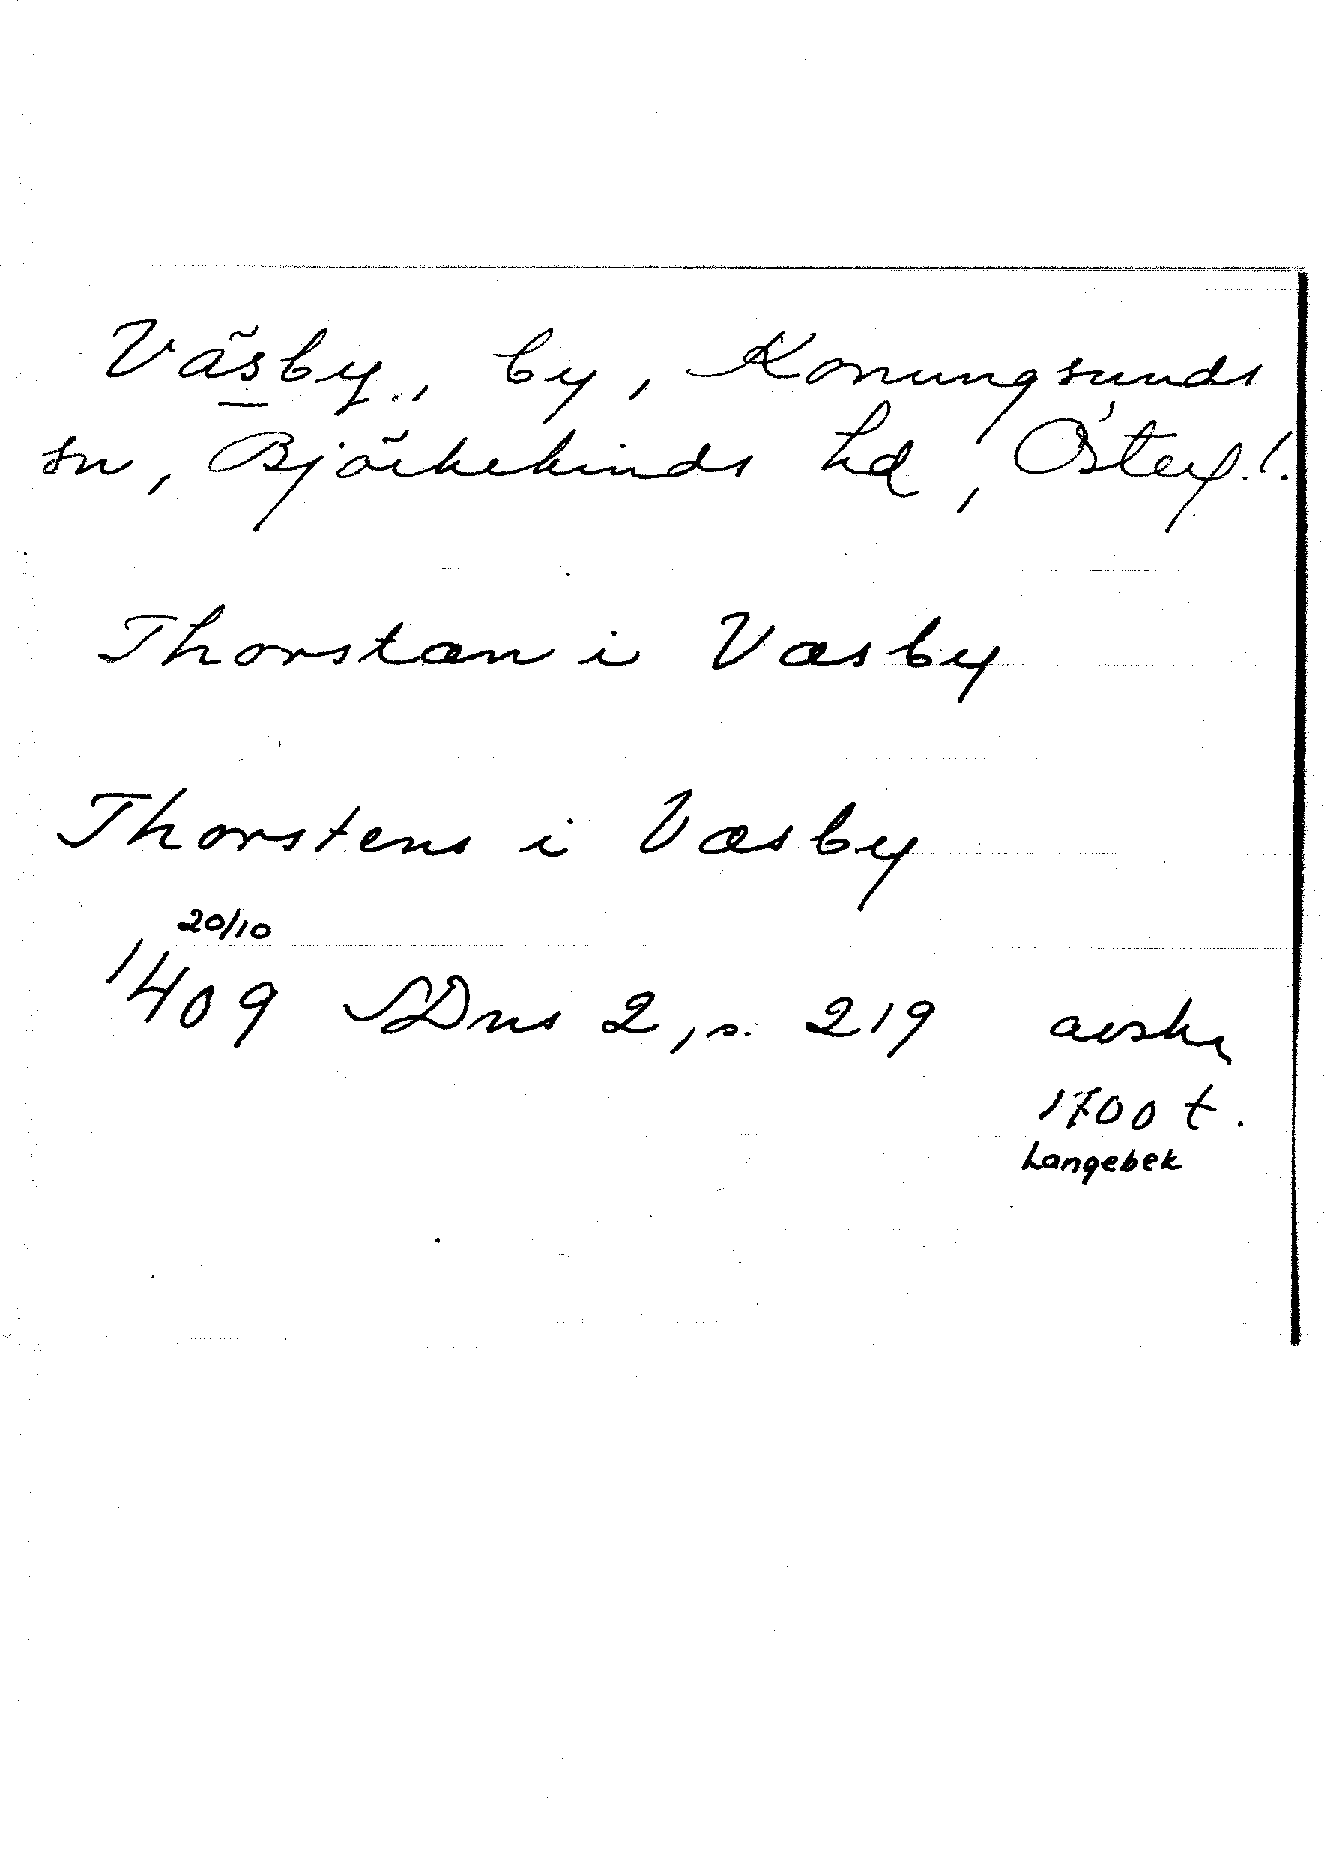 Väsby, by, Konungsunds
sn, Björkekinds hd, Österg.l.
Thorstæn i Væsby
Thorstens i Væsby
20/10
1409 SDns 2, s. 219 avskr
1700 t.
Langebek